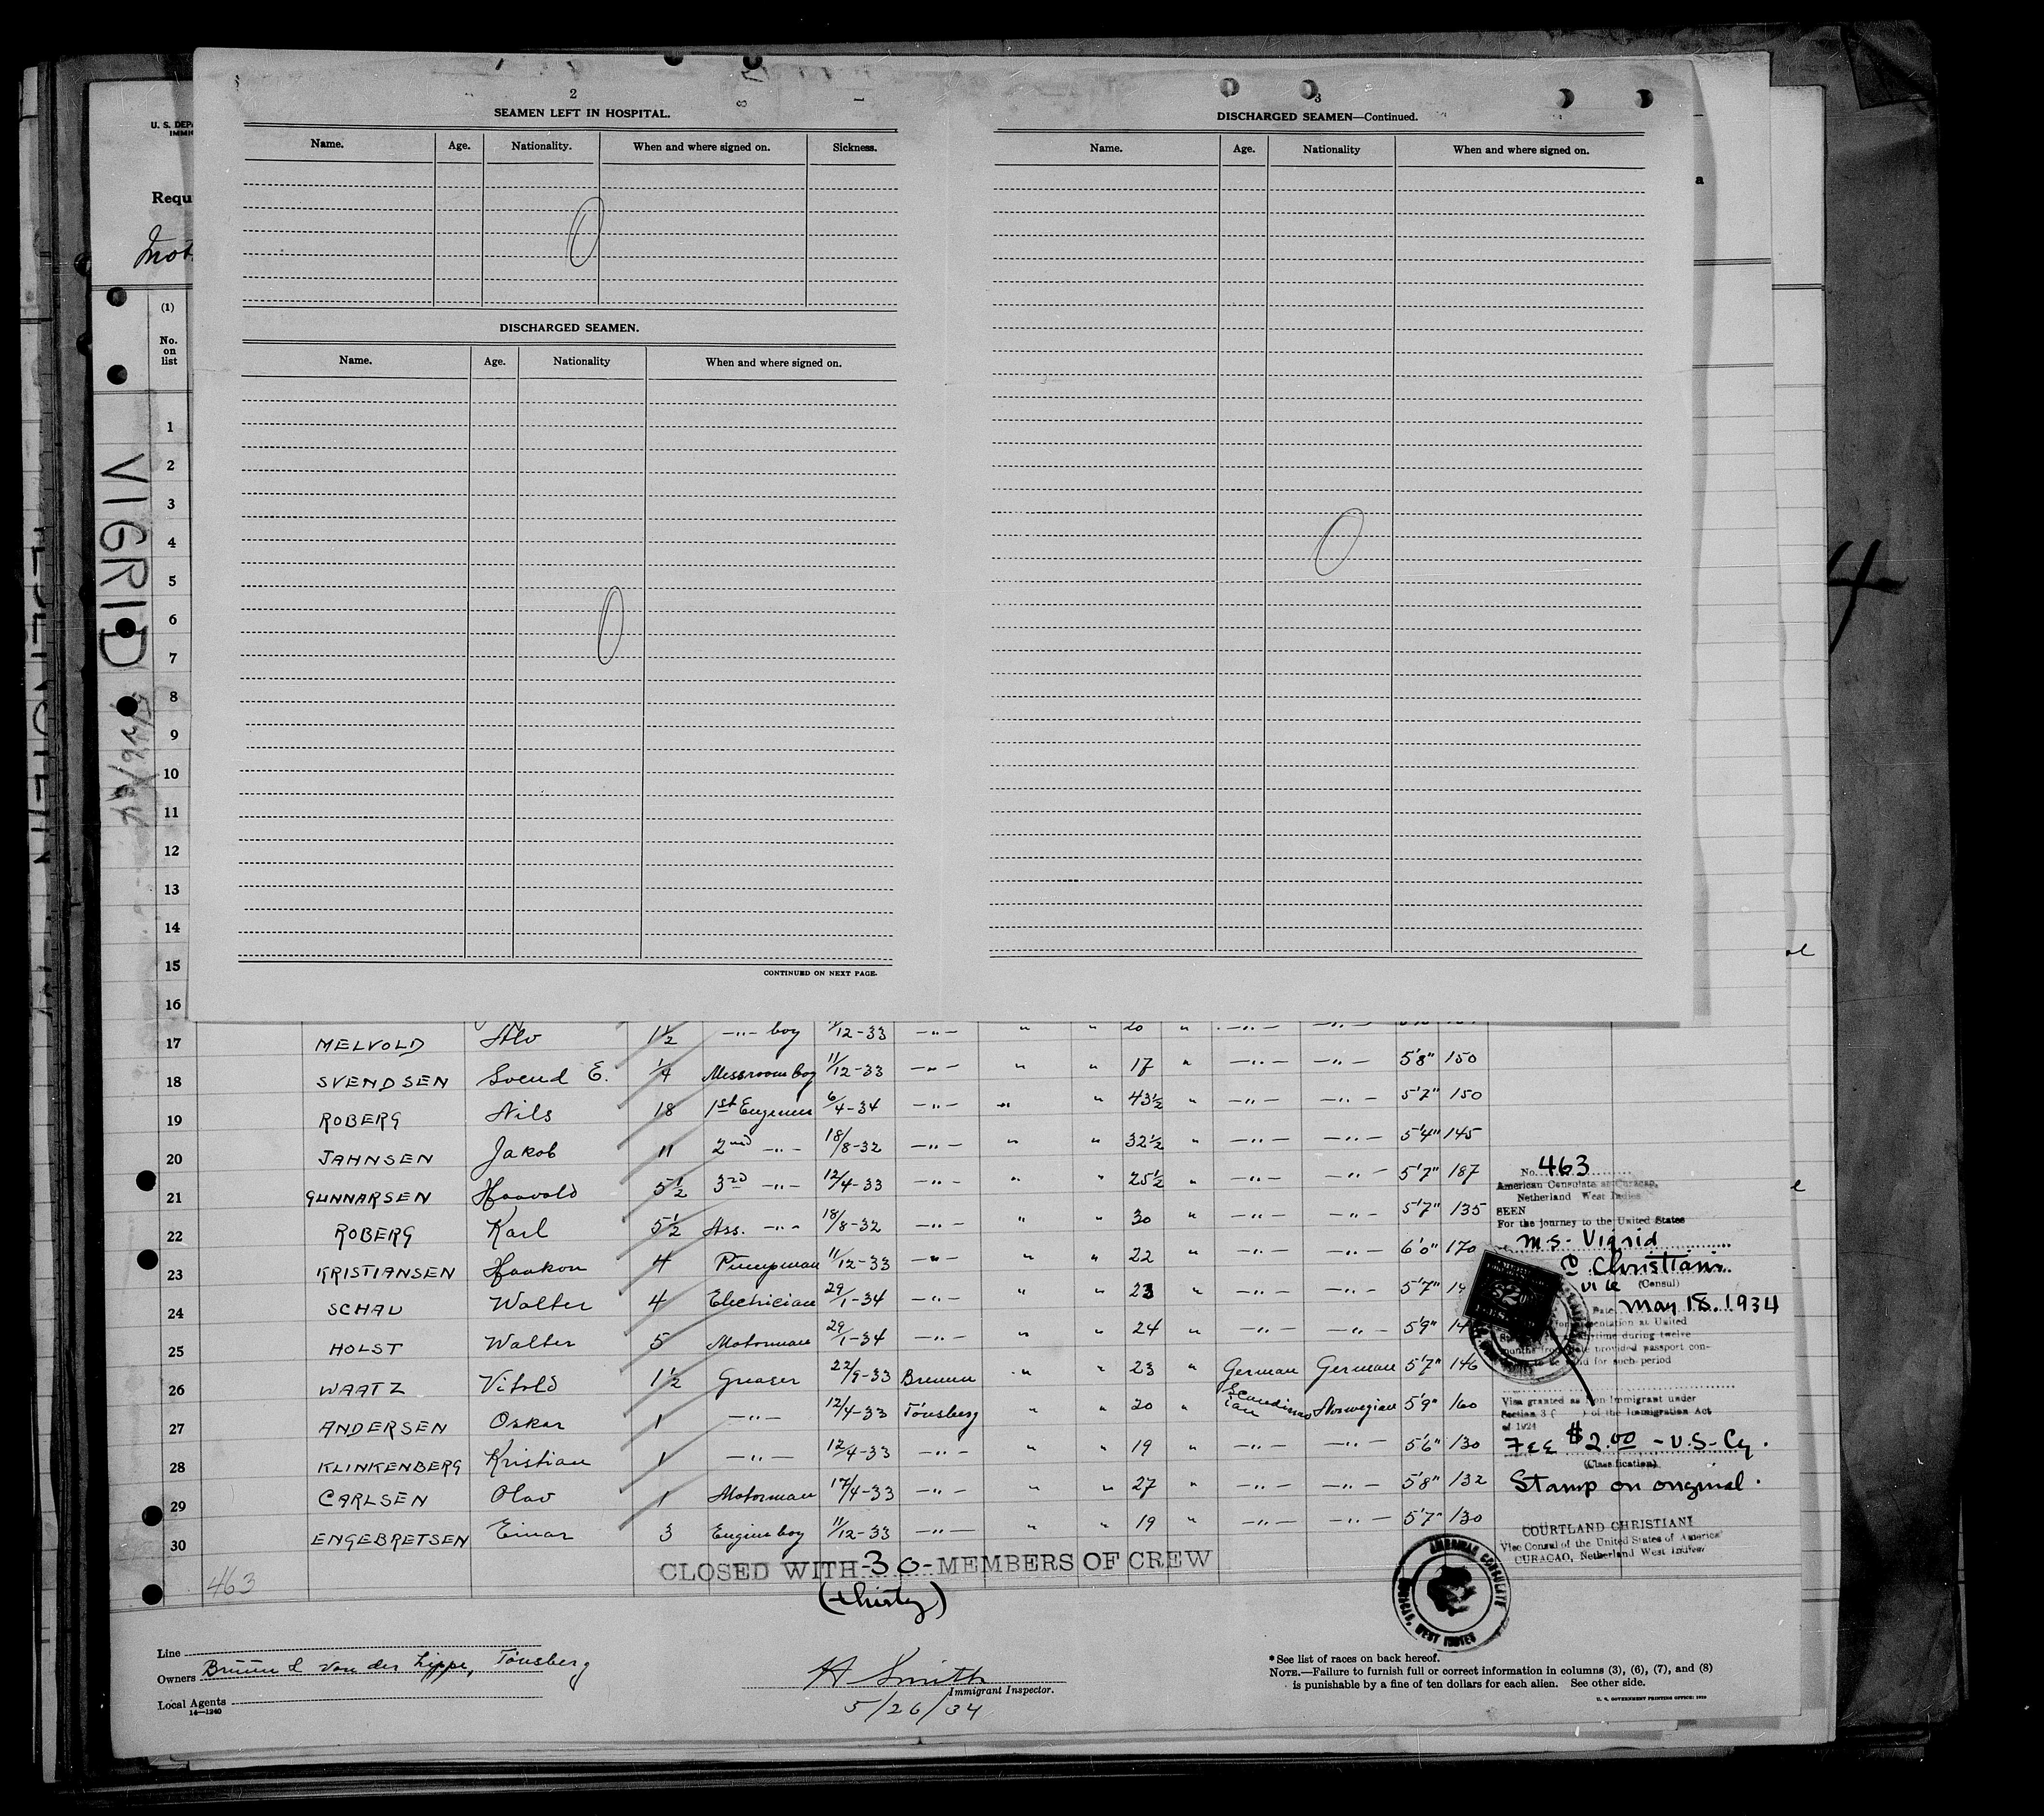 2
SEAMEN LEFT IN HOSPITAL.
Name. Age. Nationality. When and where signed on. Sickness.
0
DISCHARGED SEAMEN.
Name. Age. Nationality When and where signed on.
0
CONTINUED ON NEXT PAGE.
3
DISCHARGED SEAMEN—Continued.
Name. Age. Nationality When and where signed on.
0
U. S. DEPA
IMMI
Requ
a
Mot
(1)
No.
on
list
VIGRID
4
1
2
3
4
5
6
7
8
9
10
11
12
13
14
15
16
17 MELVOLD Alv 1½ —"— boy 11/12-33 —"— " " 20 " —"— —"—
18 SVENDSEN Svend E. ¼ Messroom boy 11/12-33 —"— " " 17 " —"— —"— 5'8" 150
19 ROBERG Nils 18 1st Engineer 6/4-34 —"— " " 43½ " —"— —"— 5'7" 150
20 JAHNSEN Jakob 11 2nd —"— 18/8-32 —"— " " 32½ " —"— —"— 5'4" 145
21 GUNNARSEN Haavald 5½ 3rd —"— 12/4-33 —"— " " 25½ " —"— —"— 5'7" 187
22 ROBERG Karl 5½ Ass. —"— 18/8-32 —"— " " 30 " —"— —"— 5'7" 135
23 KRISTIANSEN Haakon 4 Pumpman 11/12-33 —"— " " 22 " —"— —"— 6'0" 170
24 SCHAU Walter 4 Electrician 29/1-34 —"— " " 23 " —"— —"— 5'7"
25 HOLST Walter 5 Motorman 29/1-34 —"— " " 24 " —"— —"— 5'9"
26 WAATZ Vitold 1½ Greaser 22/9-33 Bremen " " 23 " German German 5'7" 146
27 ANDERSEN Oskar 1 —"— 12/4-33 Tönsberg " " 20 " Scandinavian Norwegian 5'9" 160
28 KLINKENBERG Kristian 1 —"— 12/4-33 —"— " " 19 " —"— —"— 5'6" 130
29 CARLSEN Olav 1 Motorman 17/4-33 —"— " " 27 " —"— —"— 5'8" 132
30 ENGEBRETSEN Einar 3 Engine boy 11/12-33 —"— " " 19 " —"— —"— 5'7" 130
463
CLOSED WITH -30- MEMBERS OF CREW
(thirty)
No. 463
American Consulate at Curacao,
Netherland West Indies
SEEN
For the journey to the United States
M.S. Vigrid
Christiani
(Consul)
Date May 18. 1934
months from date provided passport con-
for such period
Visa granted as Non-Immigrant under
Section 3 ( ) of the Immigration Act
of 1924
Fee $2.00 - U.S. Cy.
(Classification)
Stamp on original.
COURTLAND CHRISTIANI
Vice Consul of the United States of America
CURACAO, Netherland West Indies
AMERICAN CONSULATE
CURACAO, WEST INDIES
Line
Owners Bruun & von der Lippe, Tönsberg
Local Agents
14—1240
H Smith
Immigrant Inspector.
5/26/34
* See list of races on back hereof.
NOTE.—Failure to furnish full or correct information in columns (3), (6), (7), and (8)
is punishable by a fine of ten dollars for each alien. See other side.
U. S. GOVERNMENT PRINTING OFFICE: 1929